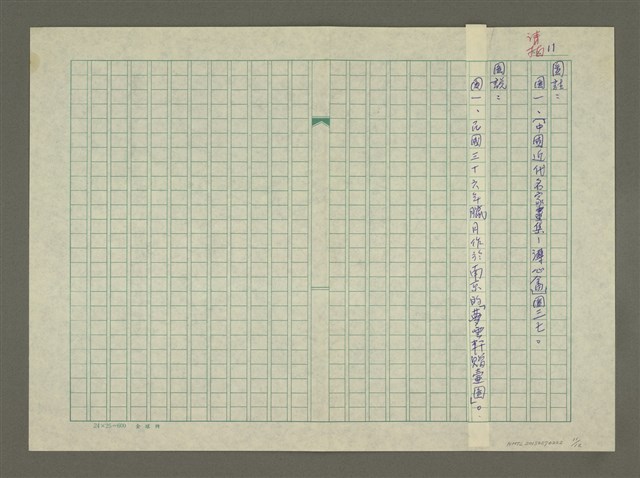 請
11
圖註：
圖一、「中國近代名家畫集－溥心畬」圖三七。
圖說：
圖一、民國三十六年臘月作於南京的「夢雲軒賭畫圖」。
24×25=600